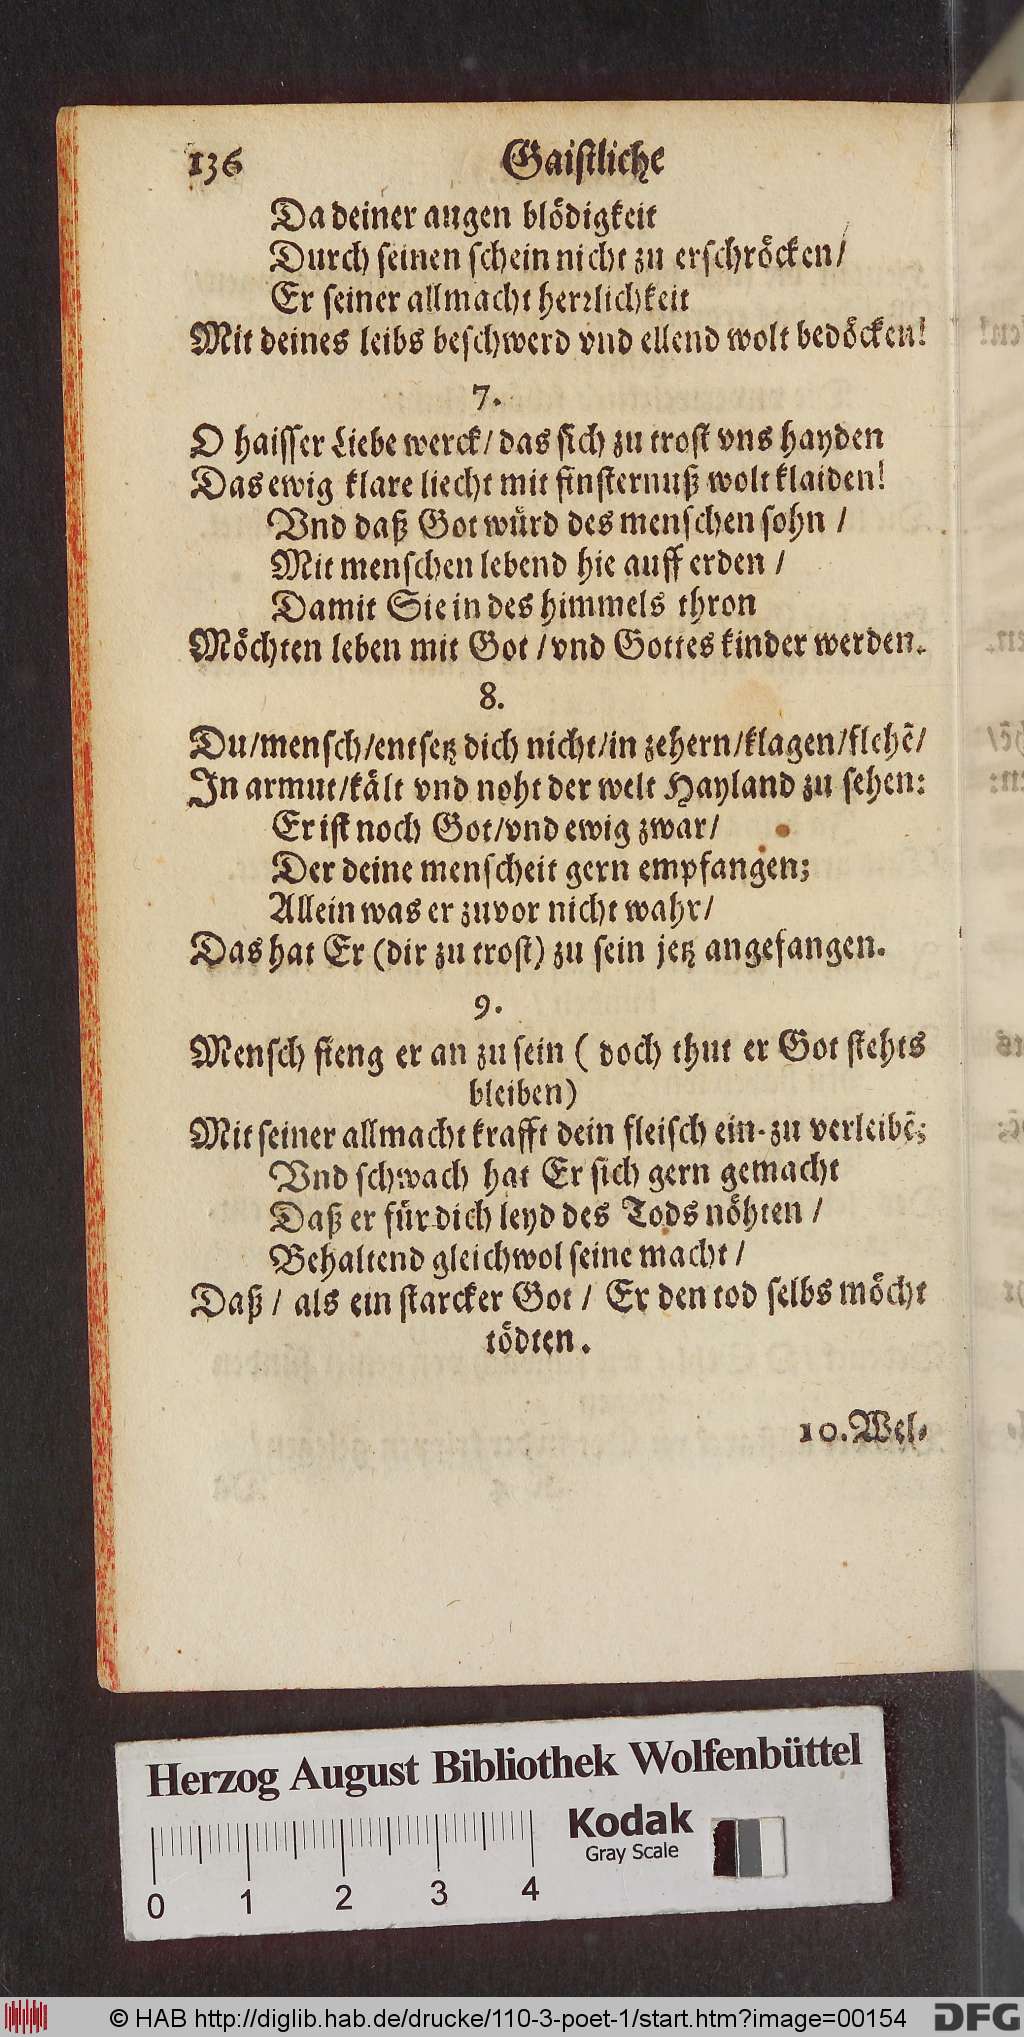 136 Gaistliche
Da deiner augen blödigkeit
Durch seinen schein nicht zu erschröcken/
Er seiner allmacht herrlichkeit
Mit deines leibs beschwerd vnd ellend wolt bedöcken!
7.
O haisser Liebe werck/ das sich zu trost vns hayden
Das ewig klare liecht mit finsternuß wolt klaiden!
Vnd daß Got würd des menschen sohn /
Mit menschen lebend hie auff erden /
Damit Sie in des himmels thron
Möchten leben mit Got / vnd Gottes kinder werden.
8.
Du/mensch/entsetz dich nicht/in zehern/klagen/flehẽ/
In armut/kält vnd noht der welt Hayland zu sehen:
Er ist noch Got/vnd ewig zwar/
Der deine menscheit gern empfangen;
Allein was er zuvor nicht wahr/
Das hat Er (dir zu trost) zu sein jetz angefangen.
9.
Mensch fieng er an zu sein ( doch thut er Got stehts
bleiben)
Mit seiner allmacht krafft dein fleisch ein-zu verleibẽ;
Vnd schwach hat Er sich gern gemacht
Daß er für dich leyd des Tods nöhten /
Behaltend gleichwol seine macht /
Daß / als ein starcker Got / Er den tod selbs möcht
tödten.
10. Wel-
Herzog August Bibliothek Wolfenbüttel
Kodak
Gray Scale
0 1 2 3 4
© HAB http://diglib.hab.de/drucke/110-3-poet-1/start.htm?image=00154
DFG